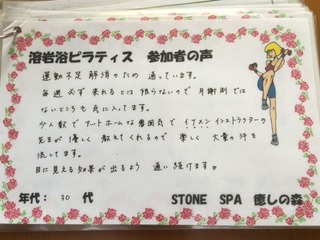 溶岩浴ピラティス 参加者の声
運動不足 解消のため 通っています。
毎週 必ず 来れるとは 限らないので 月謝制では
ないところも 気に入ってます。
少人数で アットホームな 雰囲気で イケメン インストラクターの
先生が 優しく 教えてくれるので 楽しく 大量の汗を
流してます。
目に見える 効果が 出るよう 通い続けます。
年代： 30 代 STONE SPA 癒しの森